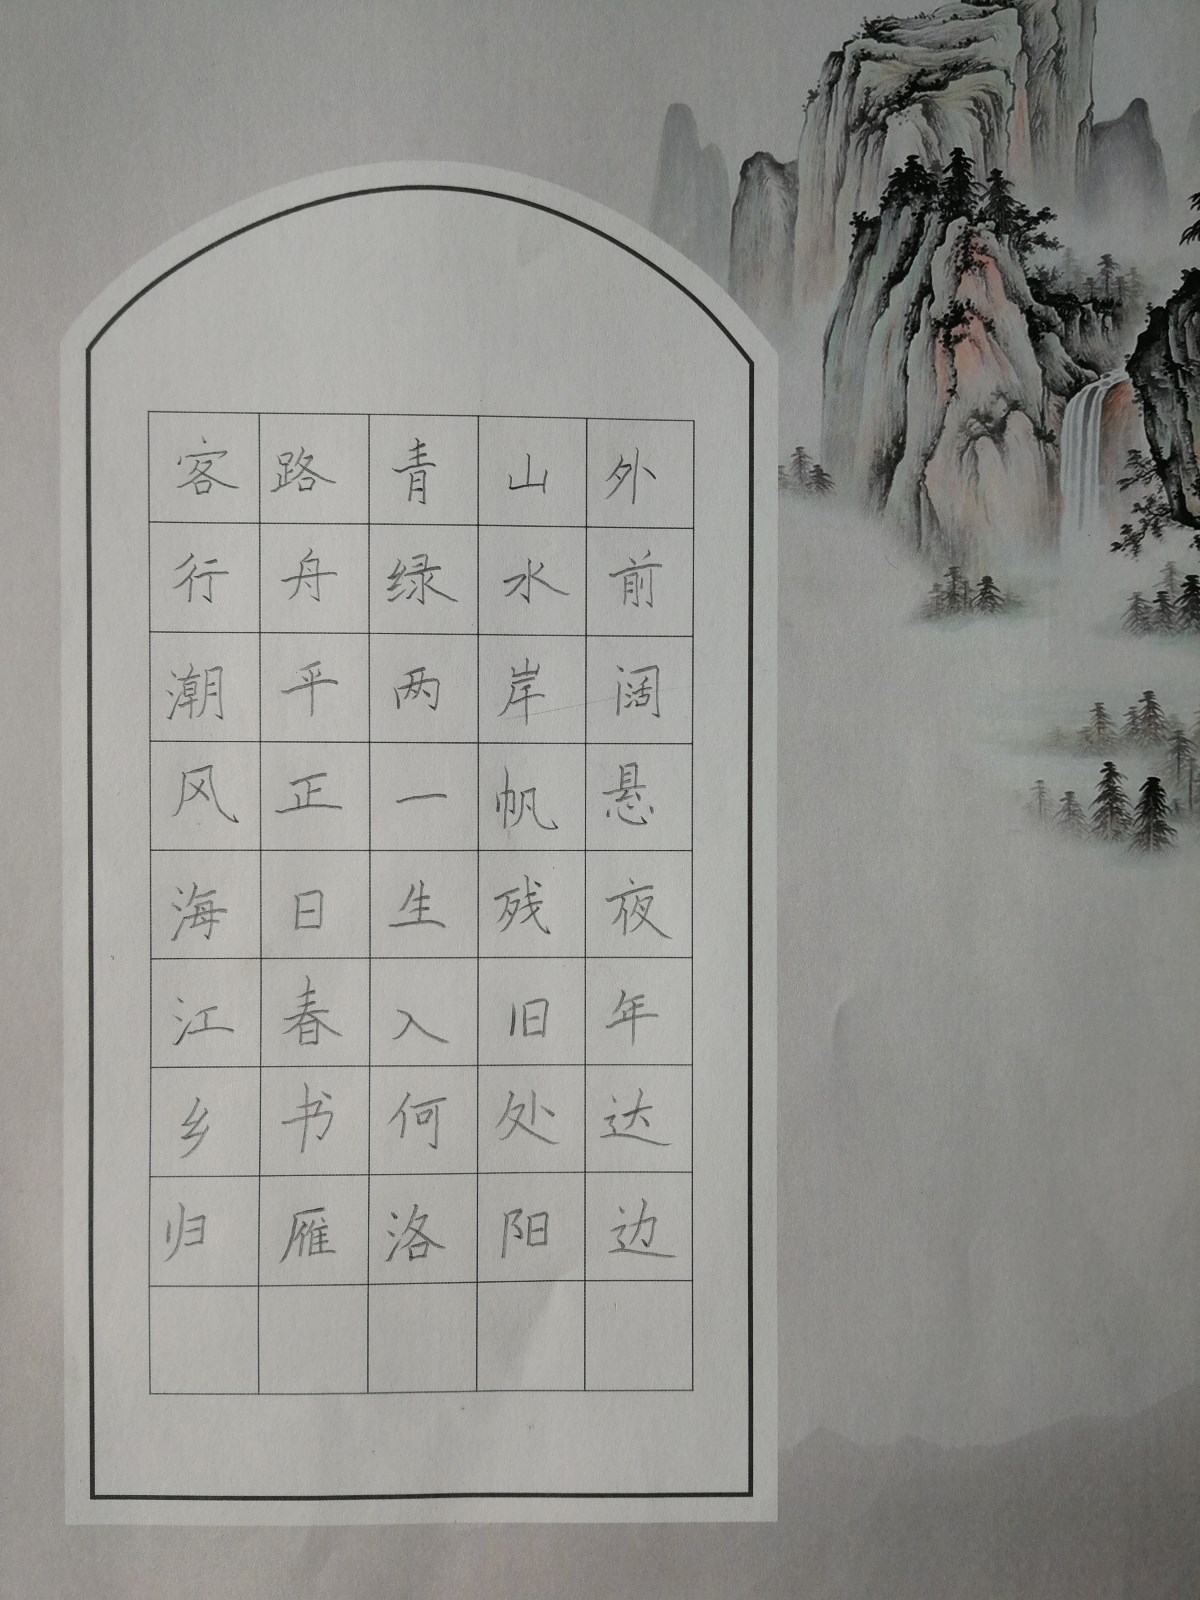 客路青山外
行舟绿水前
潮平两岸阔
风正一帆悬
海日生残夜
江春入旧年
乡书何处达
归雁洛阳边